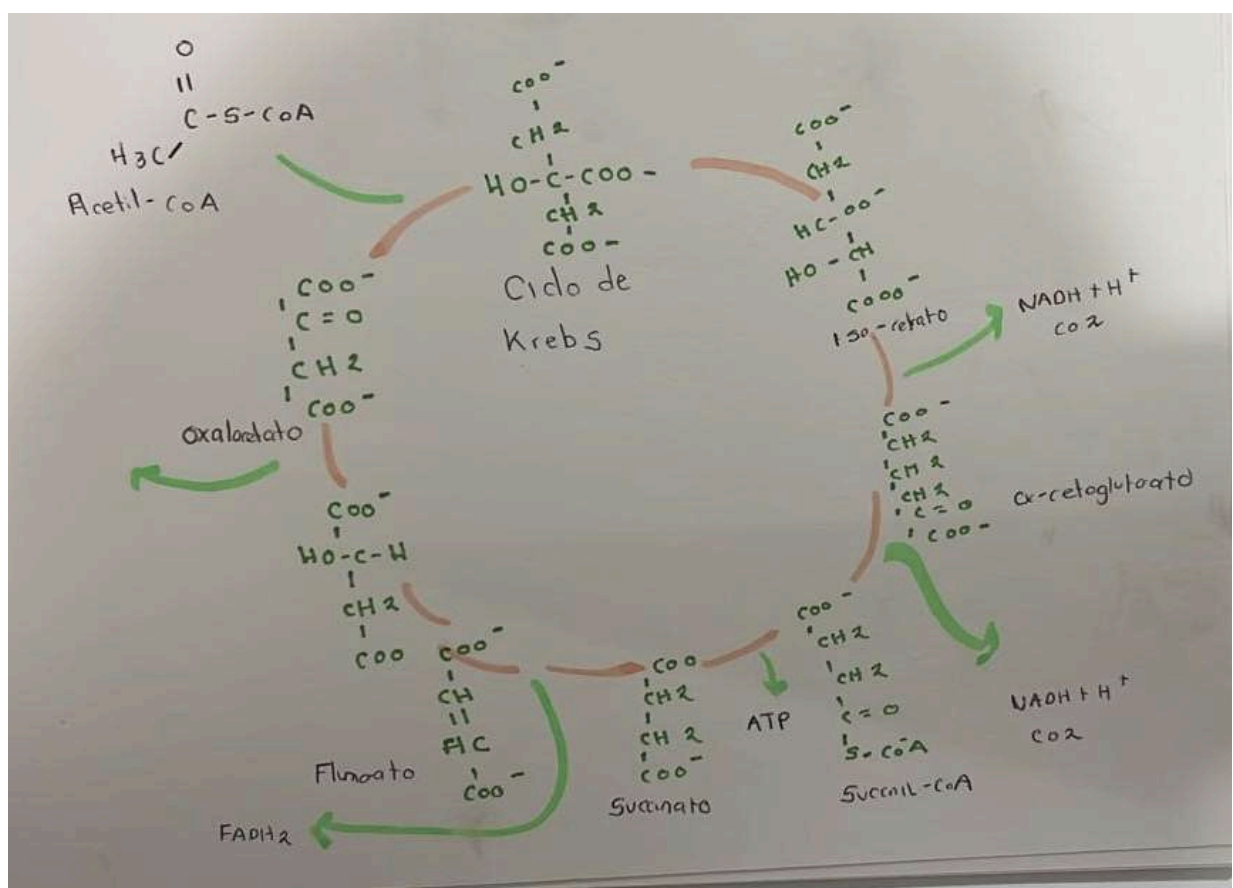 O
||
C-S-CoA
H3C
Acetil-CoA
COO-
CH2
HO-C-COO-
CH2
COO-
Ciclo de
Krebs
COO-
CH2
HC-OO-
HO-CH
COOO-
Iso-cetato
NADH+H+
CO2
COO-
CH2
CH2
CH2
C=O
COO-
α-cetoglutoato
NADH+H+
CO2
COO-
CH2
CH2
C=O
S-CoA
Succnil-CoA
ATP
COO
CH2
CH2
COO-
Succinato
COO-
CH
||
HC
COO-
Flumoato
FADH2
COO-
HO-C-H
CH2
COO
COO-
C=O
CH2
COO-
Oxaloacetato